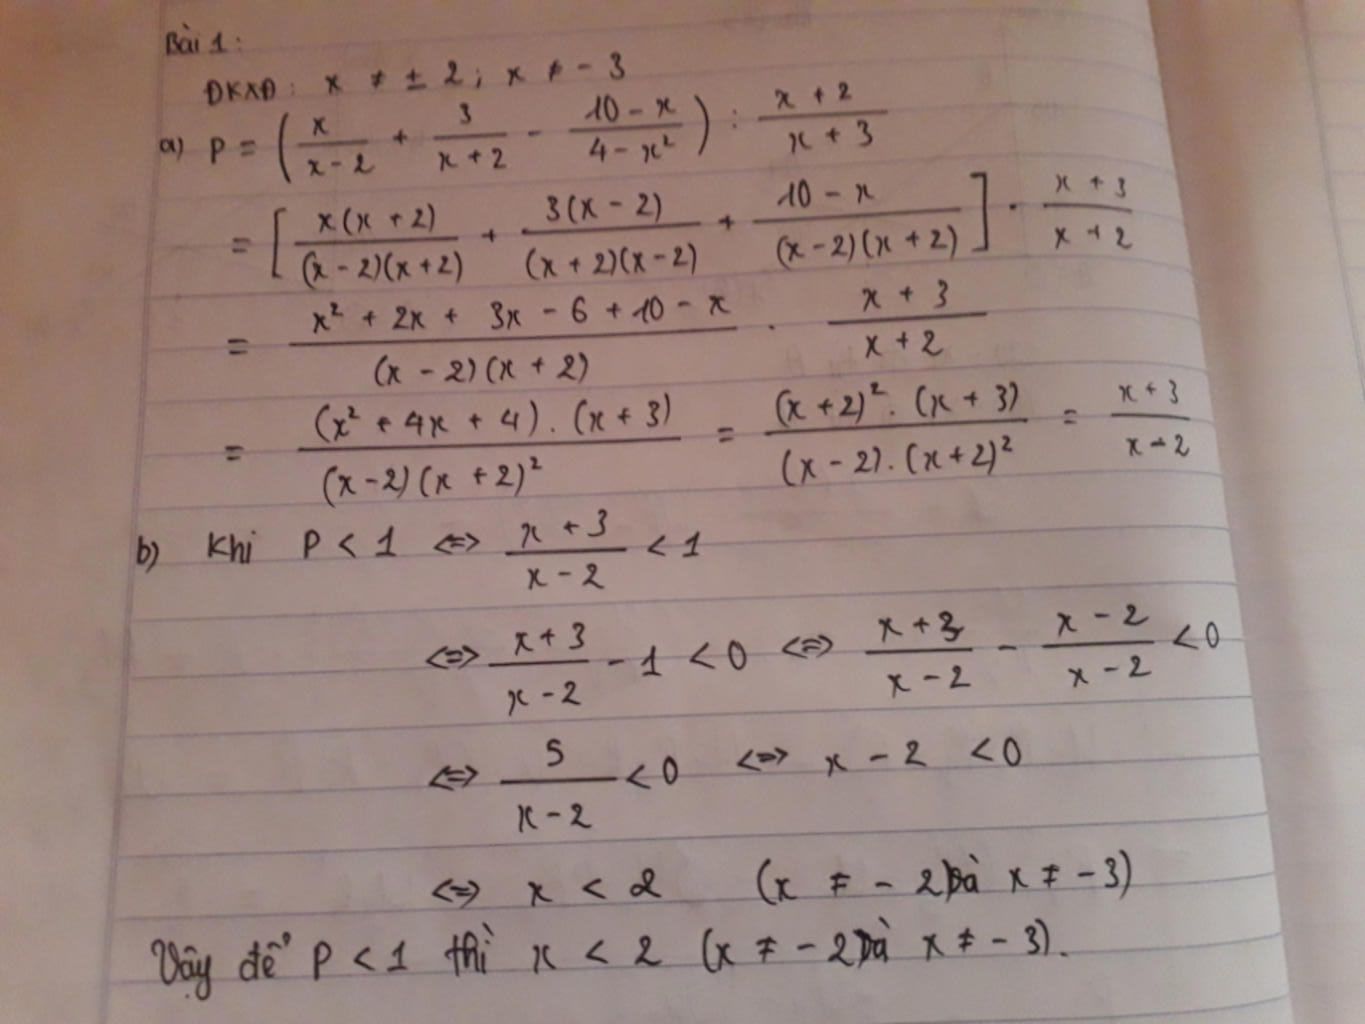 Bài 1:
ĐKXĐ: x ≠ ± 2; x ≠ - 3
a) P = (x/(x - 2) + 3/(x + 2) - (10 - x)/(4 - x²)) : (x + 2)/(x + 3)
= [x(x + 2)/((x - 2)(x + 2)) + 3(x - 2)/((x + 2)(x - 2)) + (10 - x)/((x - 2)(x + 2))] . (x + 3)/(x + 2)
= (x² + 2x + 3x - 6 + 10 - x)/((x - 2)(x + 2)) . (x + 3)/(x + 2)
= ((x² + 4x + 4) . (x + 3))/((x - 2)(x + 2)²) = ((x + 2)² . (x + 3))/((x - 2) . (x + 2)²) = (x + 3)/(x - 2)
b) Khi P < 1 <=> (x + 3)/(x - 2) < 1
<=> (x + 3)/(x - 2) - 1 < 0 <=> (x + 3)/(x - 2) - (x - 2)/(x - 2) < 0
<=> 5/(x - 2) < 0 <=> x - 2 < 0
<=> x < 2 (x ≠ - 2 và x ≠ - 3)
Vậy để P < 1 thì x < 2 (x ≠ - 2 và x ≠ - 3).